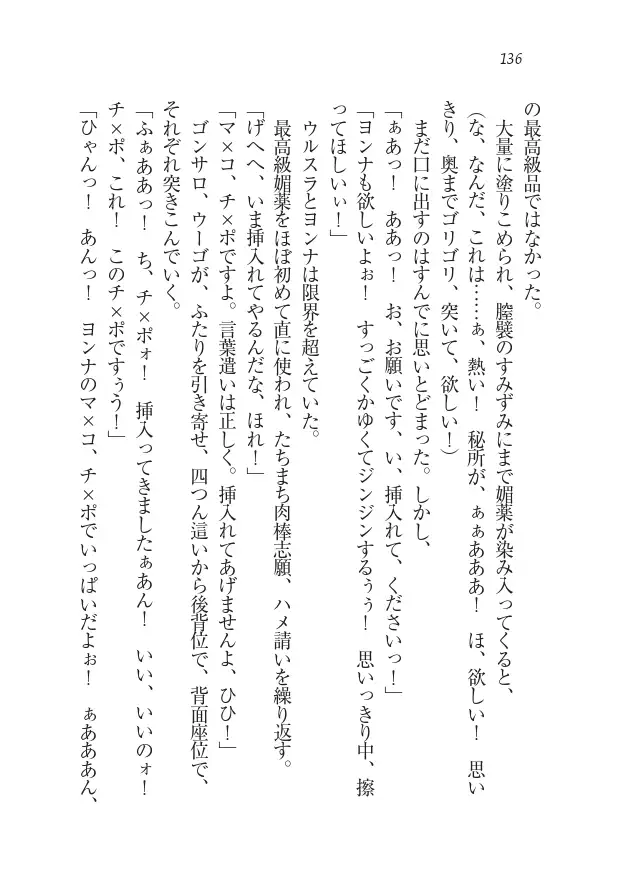 136
の最高級品ではなかった。
　大量に塗りこめられ、膣襞のすみずみにまで媚薬が染み入ってくると、
（な、なんだ、これは……ぁ、熱い！　秘所が、ぁぁあああ！　ほ、欲しい！　思い
きり、奥までゴリゴリ、突いて、欲しい！）
　まだ口に出すのはすんでに思いとどまった。しかし、
「ぁあっ！　ああっ！　お、お願いです、い、挿入れて、くださいっ！」
「ヨンナも欲しいよぉ！　すっごくかゆくてジンジンするぅぅ！　思いっきり中、擦
ってほしいぃ！」
　ウルスラとヨンナは限界を超えていた。
　最高級媚薬をほぼ初めて直に使われ、たちまち肉棒志願、ハメ請いを繰り返す。
「げへへ、いま挿入れてやるんだな、ほれ！」
「マ×コ、チ×ポですよ。言葉遣いは正しく。挿入れてあげませんよ、ひひ！」
　ゴンサロ、ウーゴが、ふたりを引き寄せ、四つん這いから後背位で、背面座位で、
それぞれ突きこんでいく。
「ふぁああっ！　ち、チ×ポォ！　挿入ってきましたぁあん！　いい、いいのォ！
チ×ポ、これ！　このチ×ポですぅう！」
「ひゃんっ！　あんっ！　ヨンナのマ×コ、チ×ポでいっぱいだよぉ！　ぁああああん、